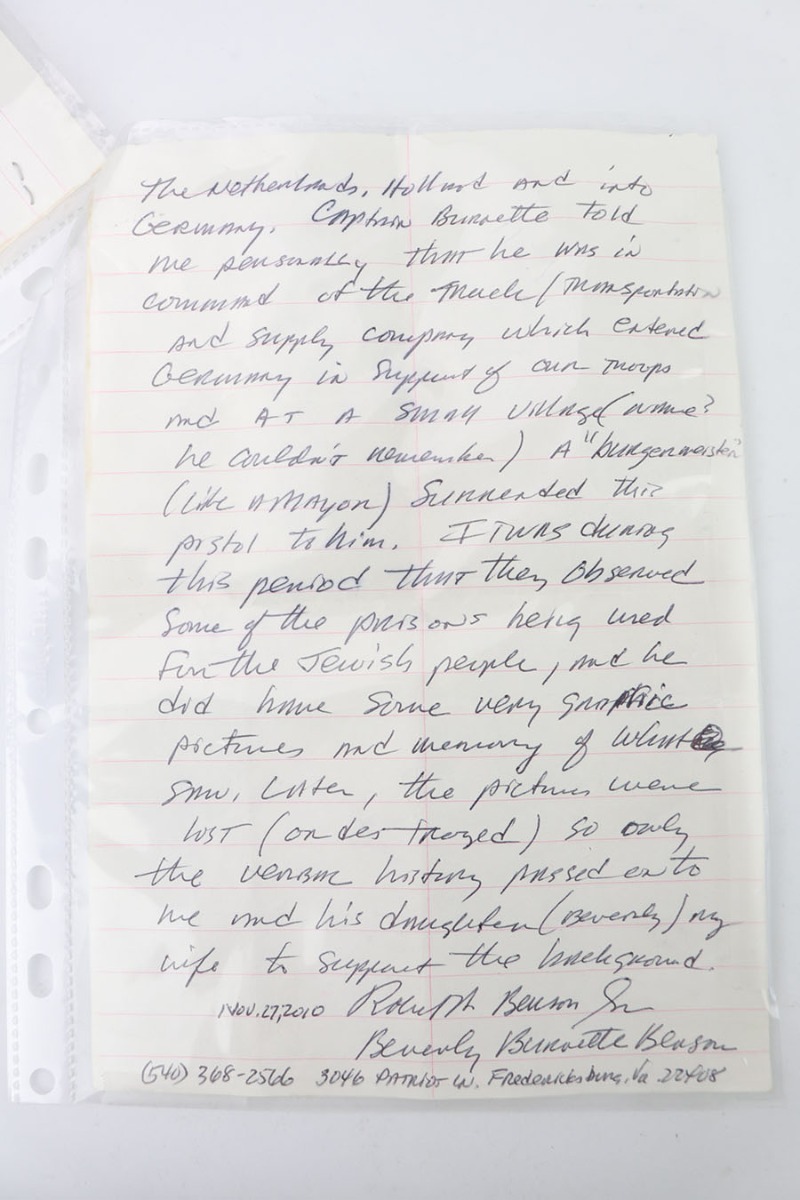 The Netherlands, Holland and into
Germany. Captain Burnette told
me personally that he was in
command of the Truck/Transportation
and supply company which entered
Germany in Support of our Troops
and AT A small village (name?
he couldn't remember) A "burgermeister"
(like A MAyor) Surrended this
pistol to him. IT was during
this period that they observed
Some of the prisons being used
For the Jewish people, and he
did have Some very graphic
pictures and memory of what
saw. Later, the pictures were
lost (or destroyed) so only
the history passed on to
me and his daughter (Beverly) my
wife to support the background.
Nov. 27, 2010 Benson Sr
Beverly Burnette Benson
(540) 368-2566 3046 PATRIOT LN. Fredericksburg, Va 22408